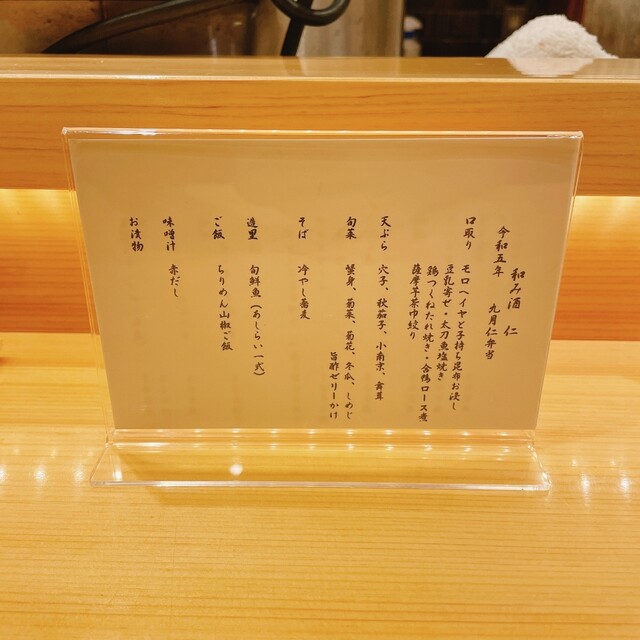 和み酒 仁
令和五年 九月仁弁当
口取り モロヘイヤと子持ち昆布お浸し
豆乳寄せ・太刀魚塩焼き
鶏つくねたれ焼き・合鴨ロース煮
薩摩芋茶巾絞り
天ぷら 穴子、秋茄子、小南京、舞茸
旬菜 蟹身、菊菜、菊花、冬瓜、しめじ
旨酢ゼリーかけ
そば 冷やし蕎麦
造里 旬鮮魚(あしらい一式)
ご飯 ちりめん山椒ご飯
味噌汁 赤だし
お漬物